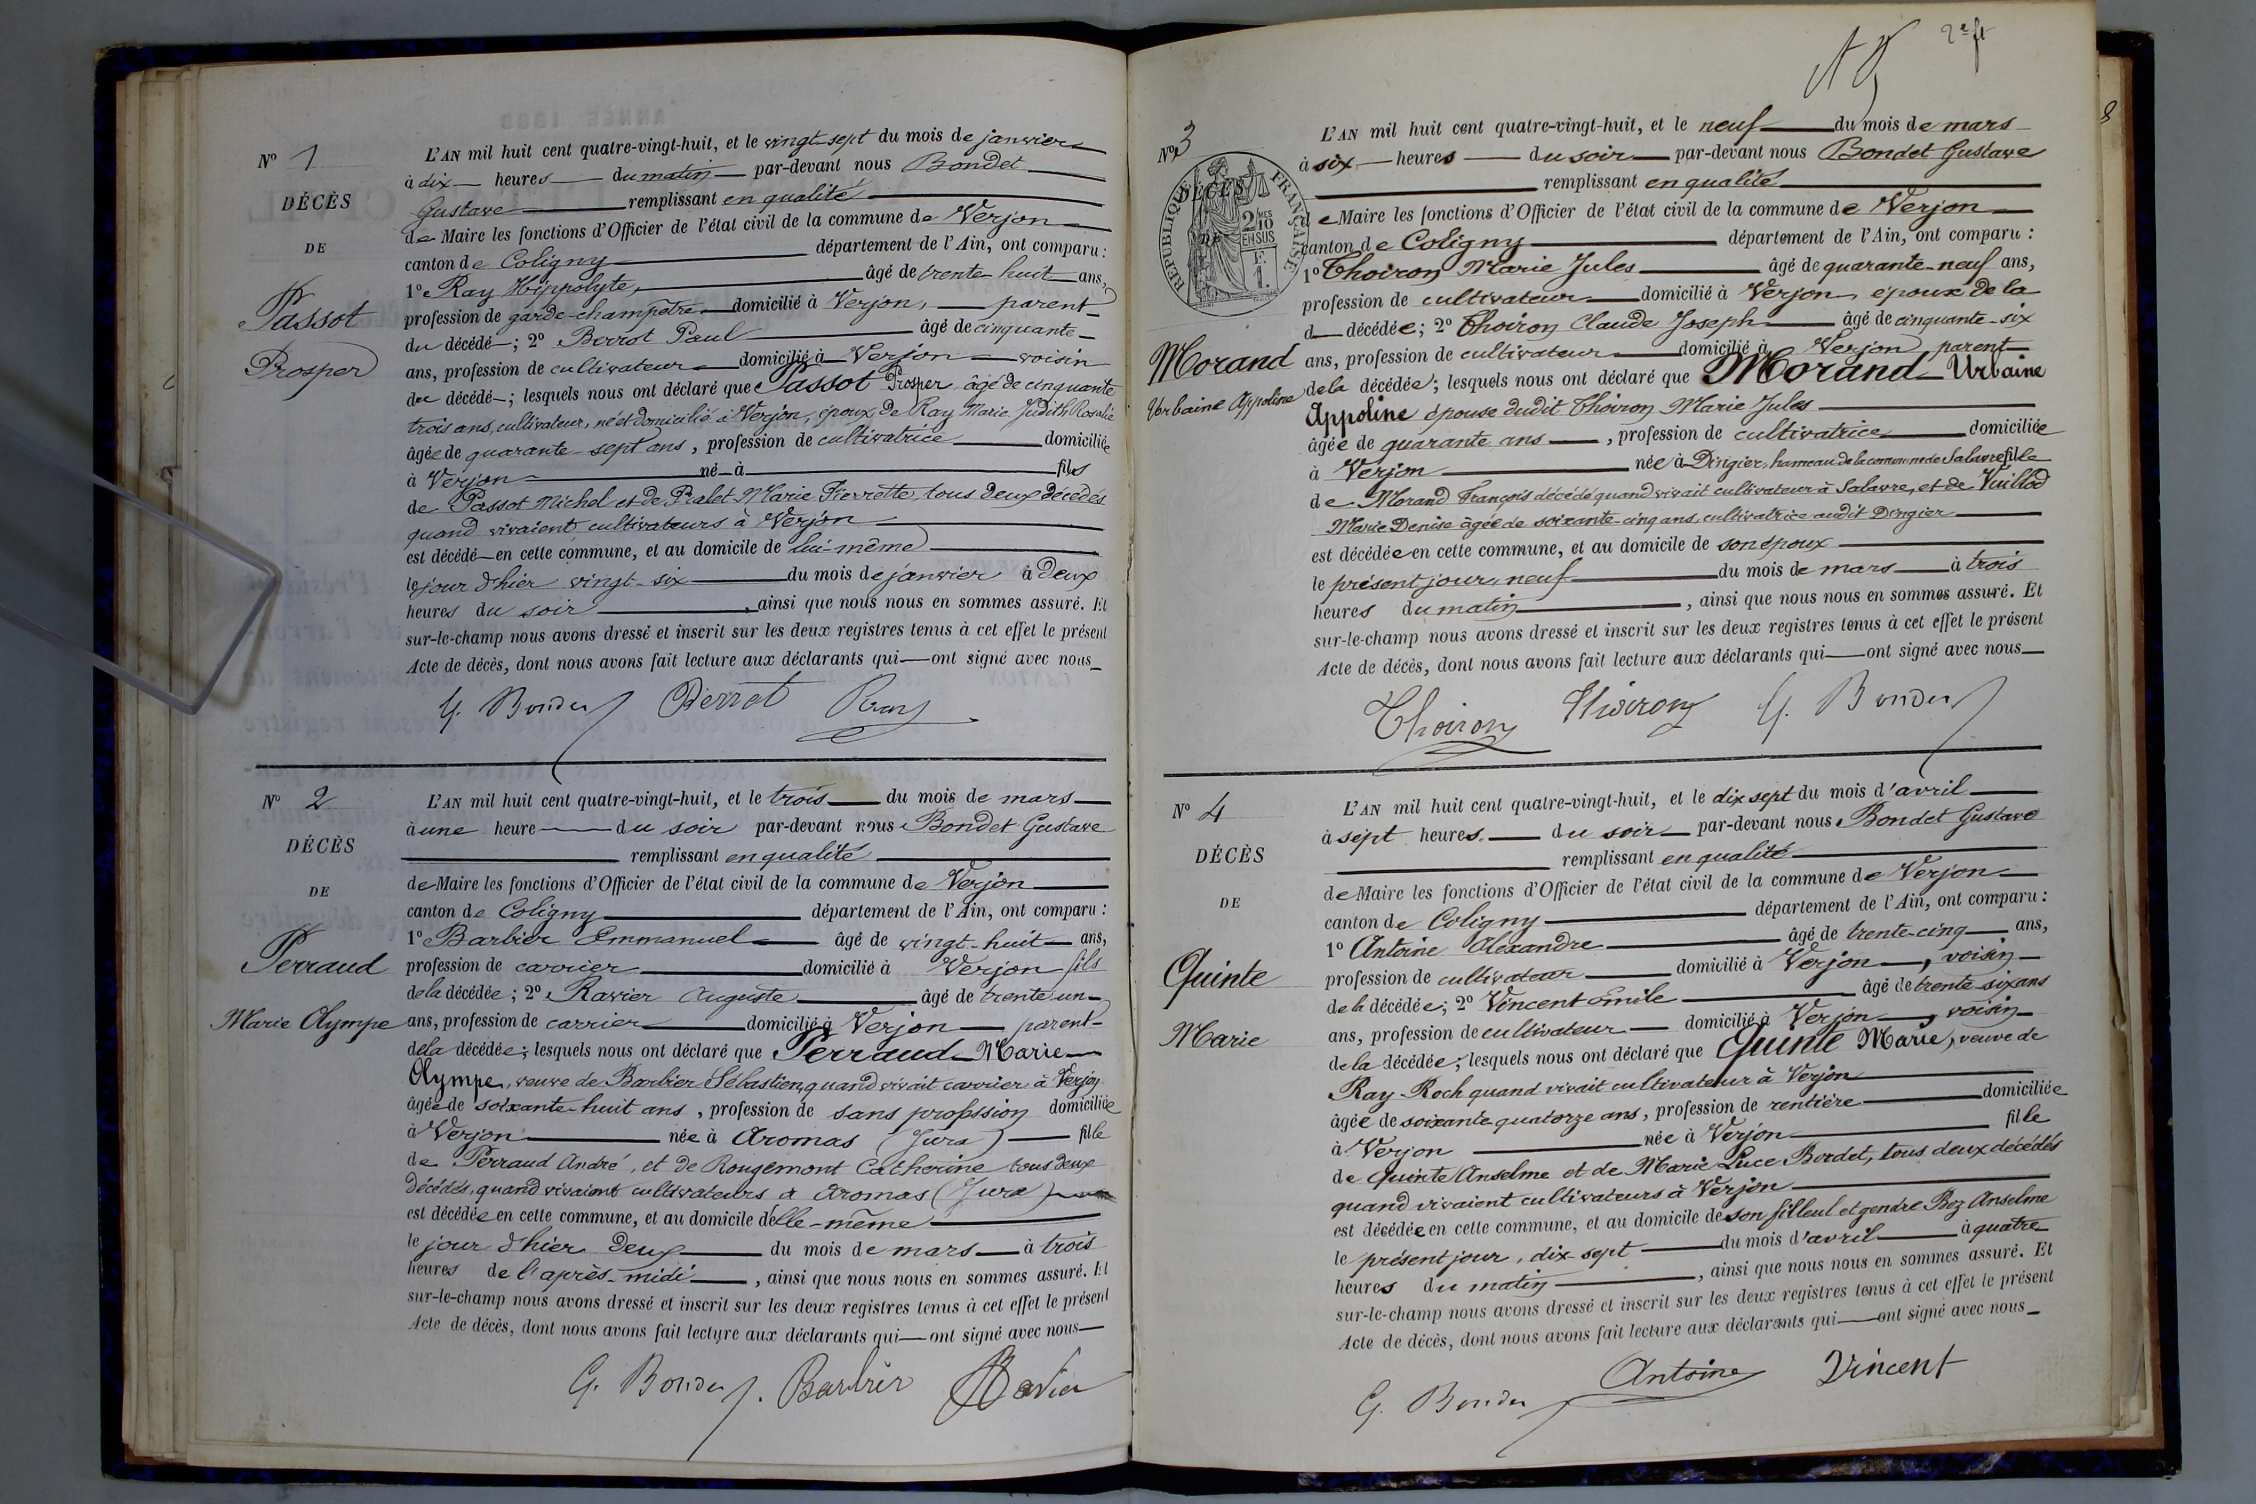 Nº 1
DÉCÈS
DE
Passot
Prosper
L'AN mil huit cent quatre-vingt-huit, et le vingt-sept du mois de janvier
à dix heures du matin par-devant nous Bondet
Gustave remplissant en qualité
de Maire les fonctions d'Officier de l'état civil de la commune de Verjon
canton de Coligny département de l'Ain, ont comparu :
1º Ray Hippolyte, âgé de trente-huit ans,
profession de garde-champêtre domicilié à Verjon, parent
du décédé ; 2º Perrot Paul âgé de cinquante
ans, profession de cultivateur domicilié à Verjon voisin
du décédé ; lesquels nous ont déclaré que Passot Prosper âgé de cinquante
trois ans, cultivateur, né et domicilié à Verjon, époux de Ray Marie Judith Rosalie
âgée de quarante-sept ans, profession de cultivatrice domiciliée
à Verjon né à fils
de Passot Michel et de Pralet Marie Pierrette, tous deux décédés
quand vivaient cultivateurs à Verjon
est décédé en cette commune, et au domicile de lui-même
le jour d'hier vingt-six du mois de janvier à deux
heures du soir, ainsi que nous nous en sommes assuré. Et
sur-le-champ nous avons dressé et inscrit sur les deux registres tenus à cet effet le présent
Acte de décès, dont nous avons fait lecture aux déclarants qui ont signé avec nous
G. Bondet Perrot Ray
Nº 2
DÉCÈS
DE
Perraud
Marie Olympe
L'AN mil huit cent quatre-vingt-huit, et le trois du mois de mars
à une heure du soir par-devant nous Bondet Gustave
remplissant en qualité
de Maire les fonctions d'Officier de l'état civil de la commune de Verjon
canton de Coligny département de l'Ain, ont comparu :
1º Barbier Emmanuel âgé de vingt-huit ans,
profession de carrier domicilié à Verjon fils
de la décédée ; 2º Ravier Auguste âgé de trente un
ans, profession de carrier domicilié à Verjon parent
de la décédée ; lesquels nous ont déclaré que Perraud Marie
Olympe, veuve de Barbier Sébastien, quand vivait carrier à Verjon
âgée de soixante-huit ans, profession de sans profession domiciliée
à Verjon née à Aromas (Jura) fille
de Perraud André, et de Rougemont Catherine tous deux
décédés, quand vivaient cultivateurs à Aromas (Jura)
est décédée en cette commune, et au domicile d'elle-même
le jour d'hier deux du mois de mars à trois
heures de l'après-midi, ainsi que nous nous en sommes assuré. Et
sur-le-champ nous avons dressé et inscrit sur les deux registres tenus à cet effet le présent
Acte de décès, dont nous avons fait lecture aux déclarants qui ont signé avec nous
G. Bondet Barbier Ravier
2e ft
Nº 3
DÉCÈS
DE
RÉPUBLIQUE FRANÇAISE
2 MES
10
EN SUS
F.
1.
Morand
Urbaine Appoline
L'AN mil huit cent quatre-vingt-huit, et le neuf du mois de mars
à six heures du soir par-devant nous Bondet Gustave
remplissant en qualité
de Maire les fonctions d'Officier de l'état civil de la commune de Verjon
canton de Coligny département de l'Ain, ont comparu :
1º Thoiron Marie Jules âgé de quarante-neuf ans,
profession de cultivateur domicilié à Verjon, époux de la
d décédée ; 2º Thoiron Claude Joseph âgé de cinquante-six
ans, profession de cultivateur domicilié à Verjon parent
de la décédée ; lesquels nous ont déclaré que Morand Urbaine
Appoline épouse dudit Thoiron Marie Jules
âgée de quarante ans, profession de cultivatrice domiciliée
à Verjon née à Dingier, hameau de la commune de Salavre fille
de Morand François décédé quand vivait cultivateur à Salavre, et de Vuillod
Marie Denise âgée de soixante-cinq ans cultivatrice audit Dingier
est décédée en cette commune, et au domicile de son époux
le présent jour, neuf du mois de mars à trois
heures du matin, ainsi que nous nous en sommes assuré. Et
sur-le-champ nous avons dressé et inscrit sur les deux registres tenus à cet effet le présent
Acte de décès, dont nous avons fait lecture aux déclarants qui ont signé avec nous
Thoiron Thoiron G. Bondet
Nº 4
DÉCÈS
DE
Quinte
Marie
L'AN mil huit cent quatre-vingt-huit, et le dix sept du mois d'avril
à sept heures du soir par-devant nous Bondet Gustave
remplissant en qualité
de Maire les fonctions d'Officier de l'état civil de la commune de Verjon
canton de Coligny département de l'Ain, ont comparu :
1º Antoine Alexandre âgé de trente-cinq ans,
profession de cultivateur domicilié à Verjon, voisin
de la décédée ; 2º Vincent Emile âgé de trente-six ans
ans, profession de cultivateur domicilié à Verjon, voisin
de la décédée ; lesquels nous ont déclaré que Quinte Marie, veuve de
Ray Roch quand vivait cultivateur à Verjon
âgée de soixante quatorze ans, profession de rentière domiciliée
à Verjon née à Verjon fille
de Quinte Anselme et de Marie Luce Bordet, tous deux décédés
quand vivaient cultivateurs à Verjon
est décédée en cette commune, et au domicile de son filleul et gendre Boz Anselme
le présent jour, dix-sept du mois d'avril à quatre
heures du matin, ainsi que nous nous en sommes assuré. Et
sur-le-champ nous avons dressé et inscrit sur les deux registres tenus à cet effet le présent
Acte de décès, dont nous avons fait lecture aux déclarants qui ont signé avec nous
G. Bondet Antoine Vincent